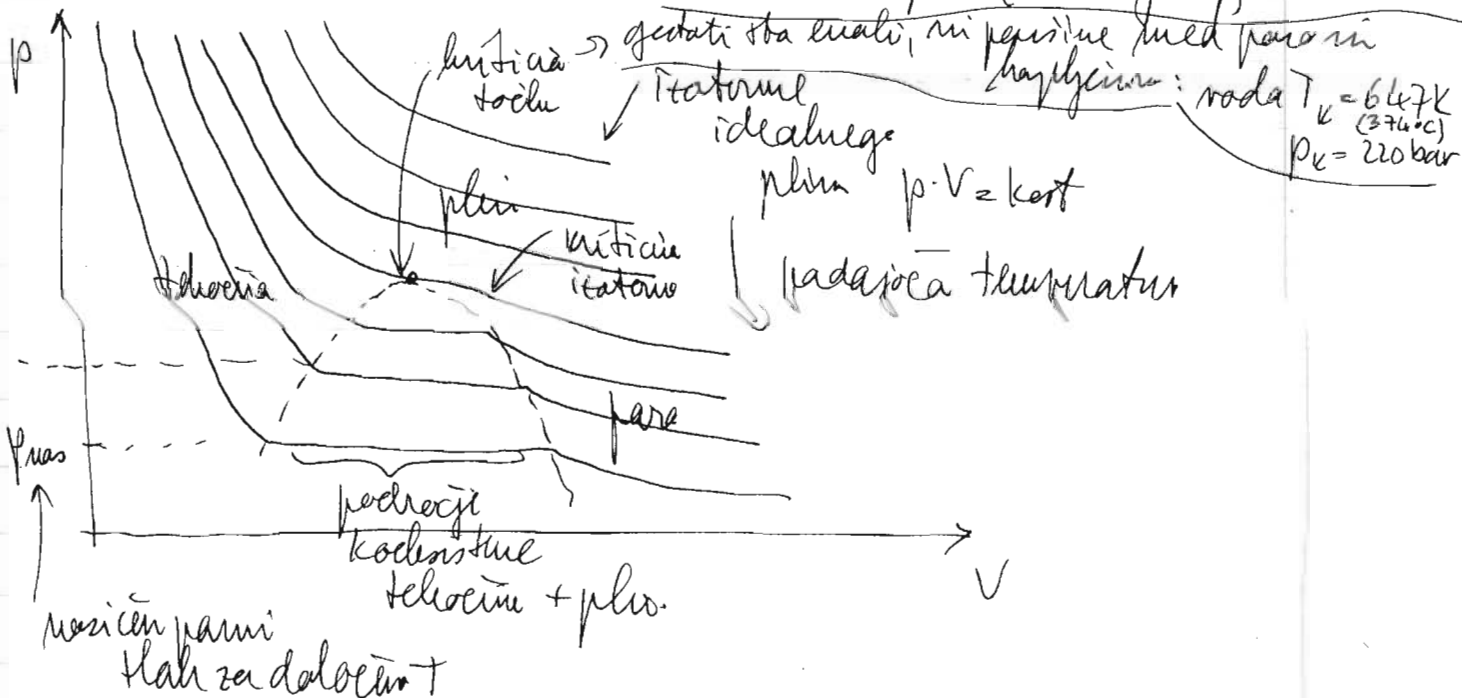 p
kritična ⇒ gostoti sta enaki, ni površine med paro in
točka
kapljevino: voda T_K = 647K
(374°C)
p_K = 220 bar
izoterme
idealnega
plina p·V = konst
plin
kritična
izoterma
padajoča temperatura
tekočina
para
p_nas
področje
koeksistence
tekočine + plin.
V
nasičen parni
tlak za določen T